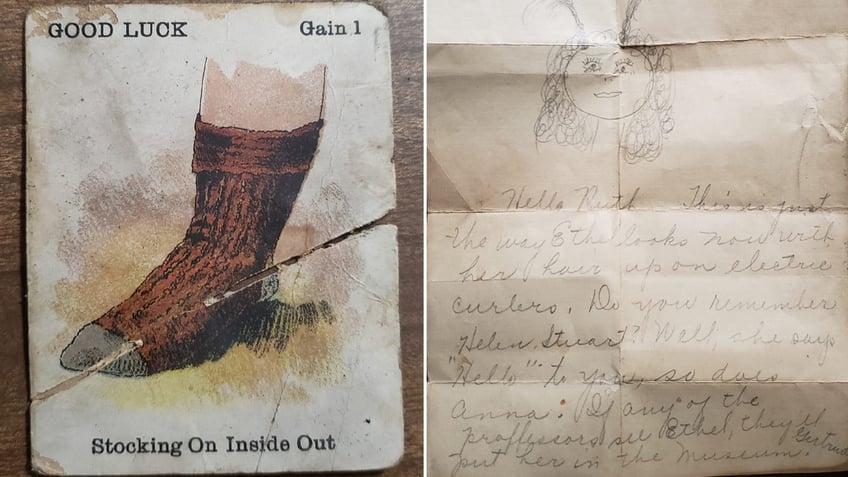 GOOD LUCK Gain 1
Stocking On Inside Out
Hello Ruth This is just
the way Ethel looks now with
her hair up on electric
curlers. Do you remember
Helen Stuart? Well, she says
"Hello" to you, so does
Anna. If any of the
proffessors see Ethel, they'll
put her in the museum. Gertrude